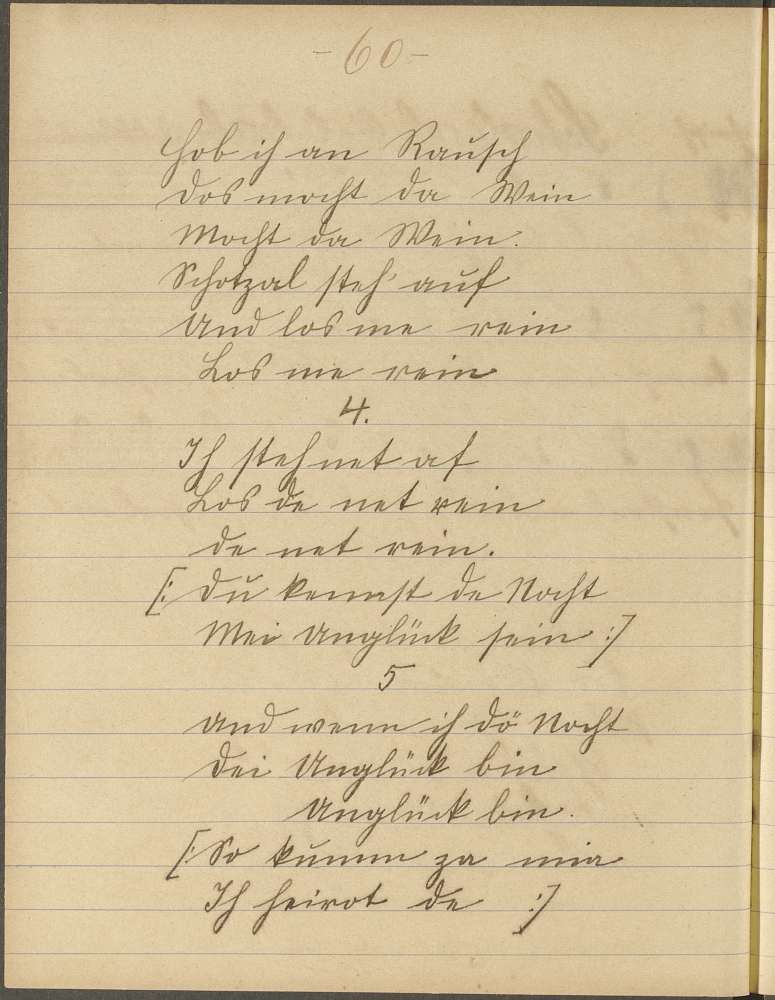 -60-
Hob ich an Rausch
Dos mocht da Wein
Mocht da Wein.
Schotzal steh' auf
Und los me rein
Los me rein
4.
Ich steh net af
Los de net rein
de net rein.
[: Du kennst de Nocht
Mei Unglück sein :]
5
Und wenn ich dö Nocht
Dei Unglück bin
Unglück bin.
[: So kumm za mia
Ich heirot de :]